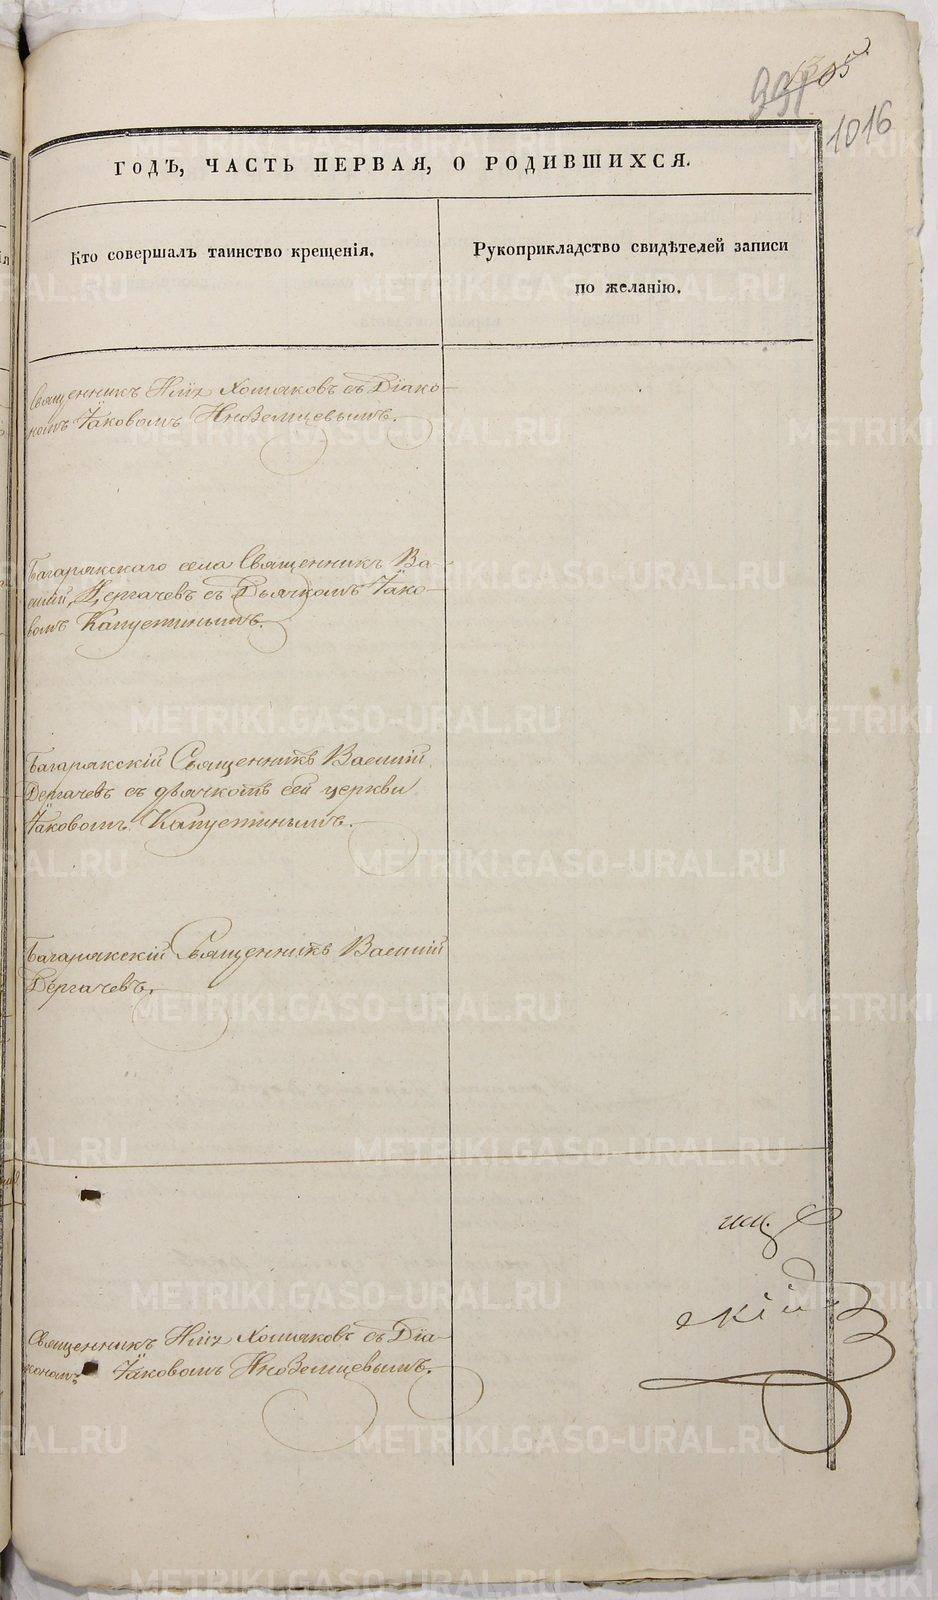 1305
991
1016
ГОДЪ, ЧАСТЬ ПЕРВАЯ, О РОДИВШИХСЯ.
Кто совершалъ таинство крещенія.
Рукоприкладство свидѣтелей записи
по желанію.
Священникъ Илія Хомяковъ съ Діако-
номъ Іаковомъ Иноземцевымъ.
Багарякскаго села Священникъ Ва-
силій Дергачевъ съ Дьячкомъ Іако-
вомъ Капустинымъ.
Багарякскій Священникъ Василій
Дергачевъ съ дьячкомъ сей церкви
Іаковомъ Капустинымъ.
Багарякскій Священникъ Василій
Дергачевъ.
Священникъ Илія Хомяковъ съ Діа-
кономъ Іаковомъ Иноземцевымъ.
скій
METRIKI.GASO-URAL.RU